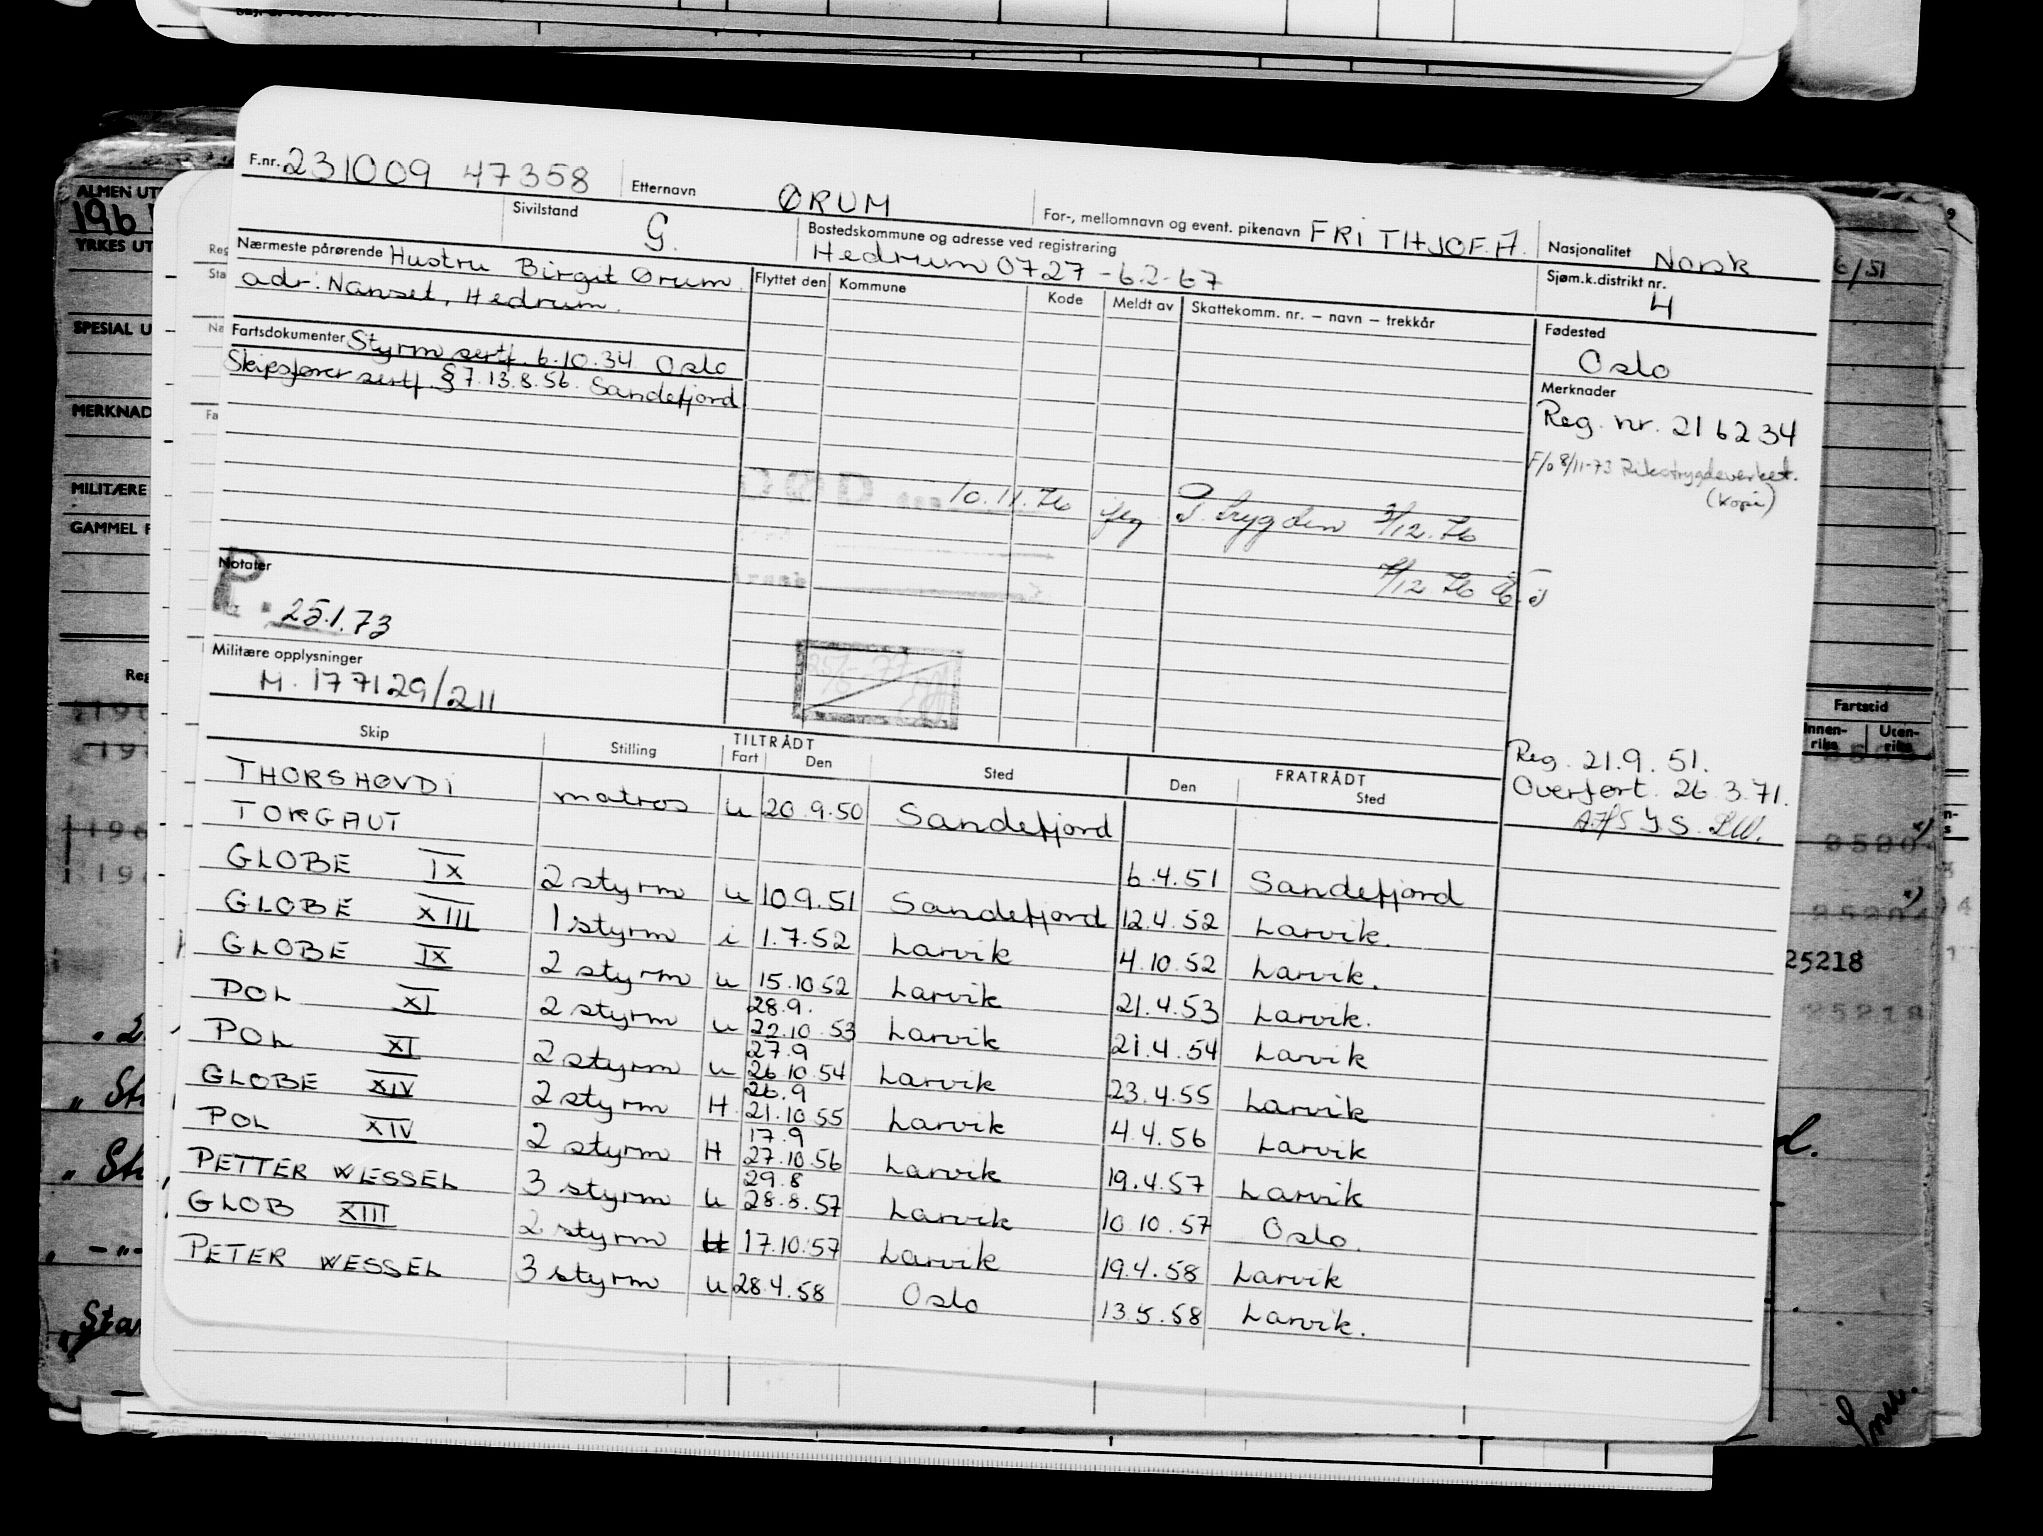 F.nr. 231009 47358 Etternavn ØRUM For-, mellomnavn og event. pikenavn FRITHJOF. A. Nasjonalitet Norsk
Sivilstand G. Bostedskommune og adresse ved registrering Hedrum 0727 - 6.2-67 Sjøm.k.distrikt nr. 4
Nærmeste pårørende Hustru Birgit Ørum
adr: Nanset, Hedrum.
Flyttet den Kommune Kode Meldt av Skattekomm. nr. – navn – trekkår
Fødested
Oslo
Fartsdokumenter Styrm sertf. 6.10.34 Oslo
Skipsfører sertf. §7. 13.8.56. Sandefjord
Merknader
Reg. nr. 216234
F/o 8/11-73 Rikstrygdeverket.
(kopi)
10.11.76 P. Trygden 3/12.76
7/12.76
Notater
P
25.1.73
Militære opplysninger
M. 177129/211
Reg. 21.9.51.
Overført. 26.3.71.
Skip Stilling TILTRÅDT Fart Den Sted FRATRÅDT Den Sted
THORSHØVDI matros u 20.9.50 Sandefjord
TORGAUT 6.4.51 Sandefjord
GLOBE IX 2 styrm u 10 9.51 Sandefjord 12.4.52 Larvik.
GLOBE XIII 1 styrm i 1.7.52 Larvik 4.10.52 Larvik.
GLOBE IX 2 styrm u 15.10 52 Larvik 21.4.53 Larvik.
POL XI 2 styrm u 28.9. 22.10.53 Larvik 21.4.54 Larvik
POL XI 2 styrm u 27.9 26 10.54 Larvik 23.4.55 Larvik
GLOBE XIV 2 styrm H 26.9 21.10 55 Larvik 4.4.56 Larvik
POL XIV 2 styrm H 17.9 27.10.56 Larvik 19.4.57 Larvik
PETTER WESSEL 3 styrm u 29.8 28.8.57 Larvik 10.10.57 Oslo.
GLOB XIII 2 styrm H 17.10.57 Larvik 19.4.58 Larvik
PETER WESSEL 3 styrm u 28.4.58 Oslo 13.5.58 Larvik.
ALMEN UT
YRKES UT
SPESIAL U
MERKNAD
MILITÆRE
GAMMEL F
Reg
Fartstid
Innen-riks Uten-riks
25218
25218